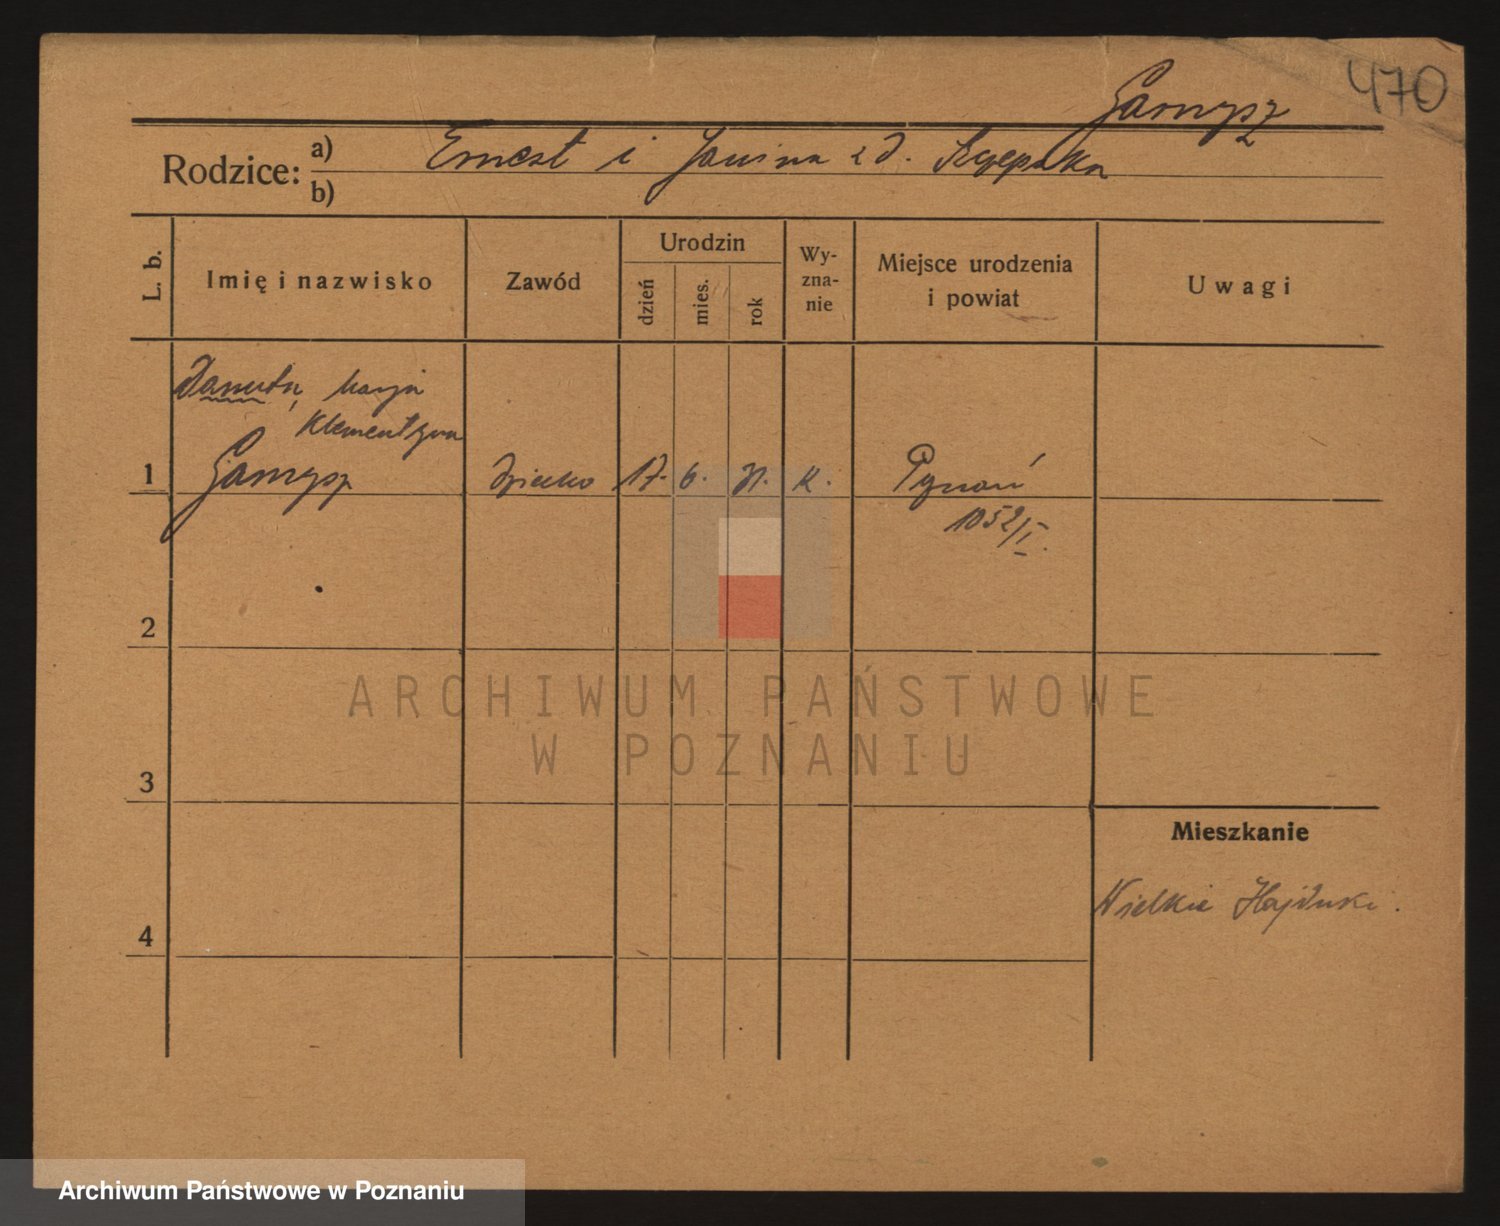 470
Garnysz
Rodzice: a) Ernest i Janina z d.
b)
L. b. Imię i nazwisko Zawód Urodzin dzień mies. rok Wy-zna-nie Miejsce urodzenia i powiat Uwagi
Danuta, Marja
Klementyna
1 Garnysz dziecko 17. 6. 31. k. Poznań
1052/I.
2
ARCHIWUM PAŃSTWOWE
W POZNANIU
3
Mieszkanie
Wielkie Hajduki.
4
Archiwum Państwowe w Poznaniu